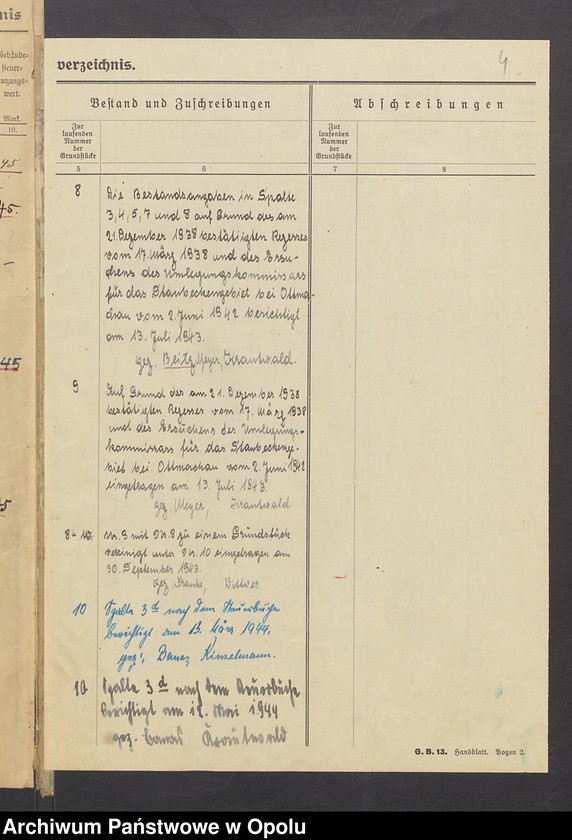 nis
Gebäude-
steuer-
nutzungs-
wert.
Mark.
10.
45
45.
45
5
verzeichnis.
4
Bestand und Zuschreibungen
Abschreibungen
Zur
laufenden
Nummer
der
Grundstücke
Zur
laufenden
Nummer
der
Grundstücke
5
6
7
8
8
Die Bestandsangaben in Spalte
3, 4, 5, 7 und 8 auf Grund des am
21. Dezember 1938 bestätigten Rezesses
vom 17. März 1938 und des Ersu-
chens des Umlegungskommissars
für das Staubeckengebiet bei Ottma-
chau vom 2. Juni 1942 berichtigt
am 13. Juli 1943.
gez. Beitz Meyer, Krautwald.
9
Auf Grund des am 21. Dezember 1938
bestätigten Rezesses vom 17. März 1938
und des Ersuchens des Umlegungs-
kommissars für das Staubeckenge-
biet bei Ottmachau vom 2. Juni 1942
eingetragen am 13. Juli 1943.
gez. Meyer, Krautwald
8-10
Nr. 9 mit Nr. 8 zu einem Grundstück
vereinigt unter Nr. 10 eingetragen am
30. September 1943.
gez. Franke, Dittwer.
10
Spalte 3d nach dem Steuerbuche
berichtigt am 13. März 1944.
gez. Kinzelmann.
10
Spalte 3d nach dem Steuerbuche
berichtigt am 12. Mai 1944
gez. Krautwald
G. B. 13. Handblatt. Bogen 2.
Archiwum Państwowe w Opolu